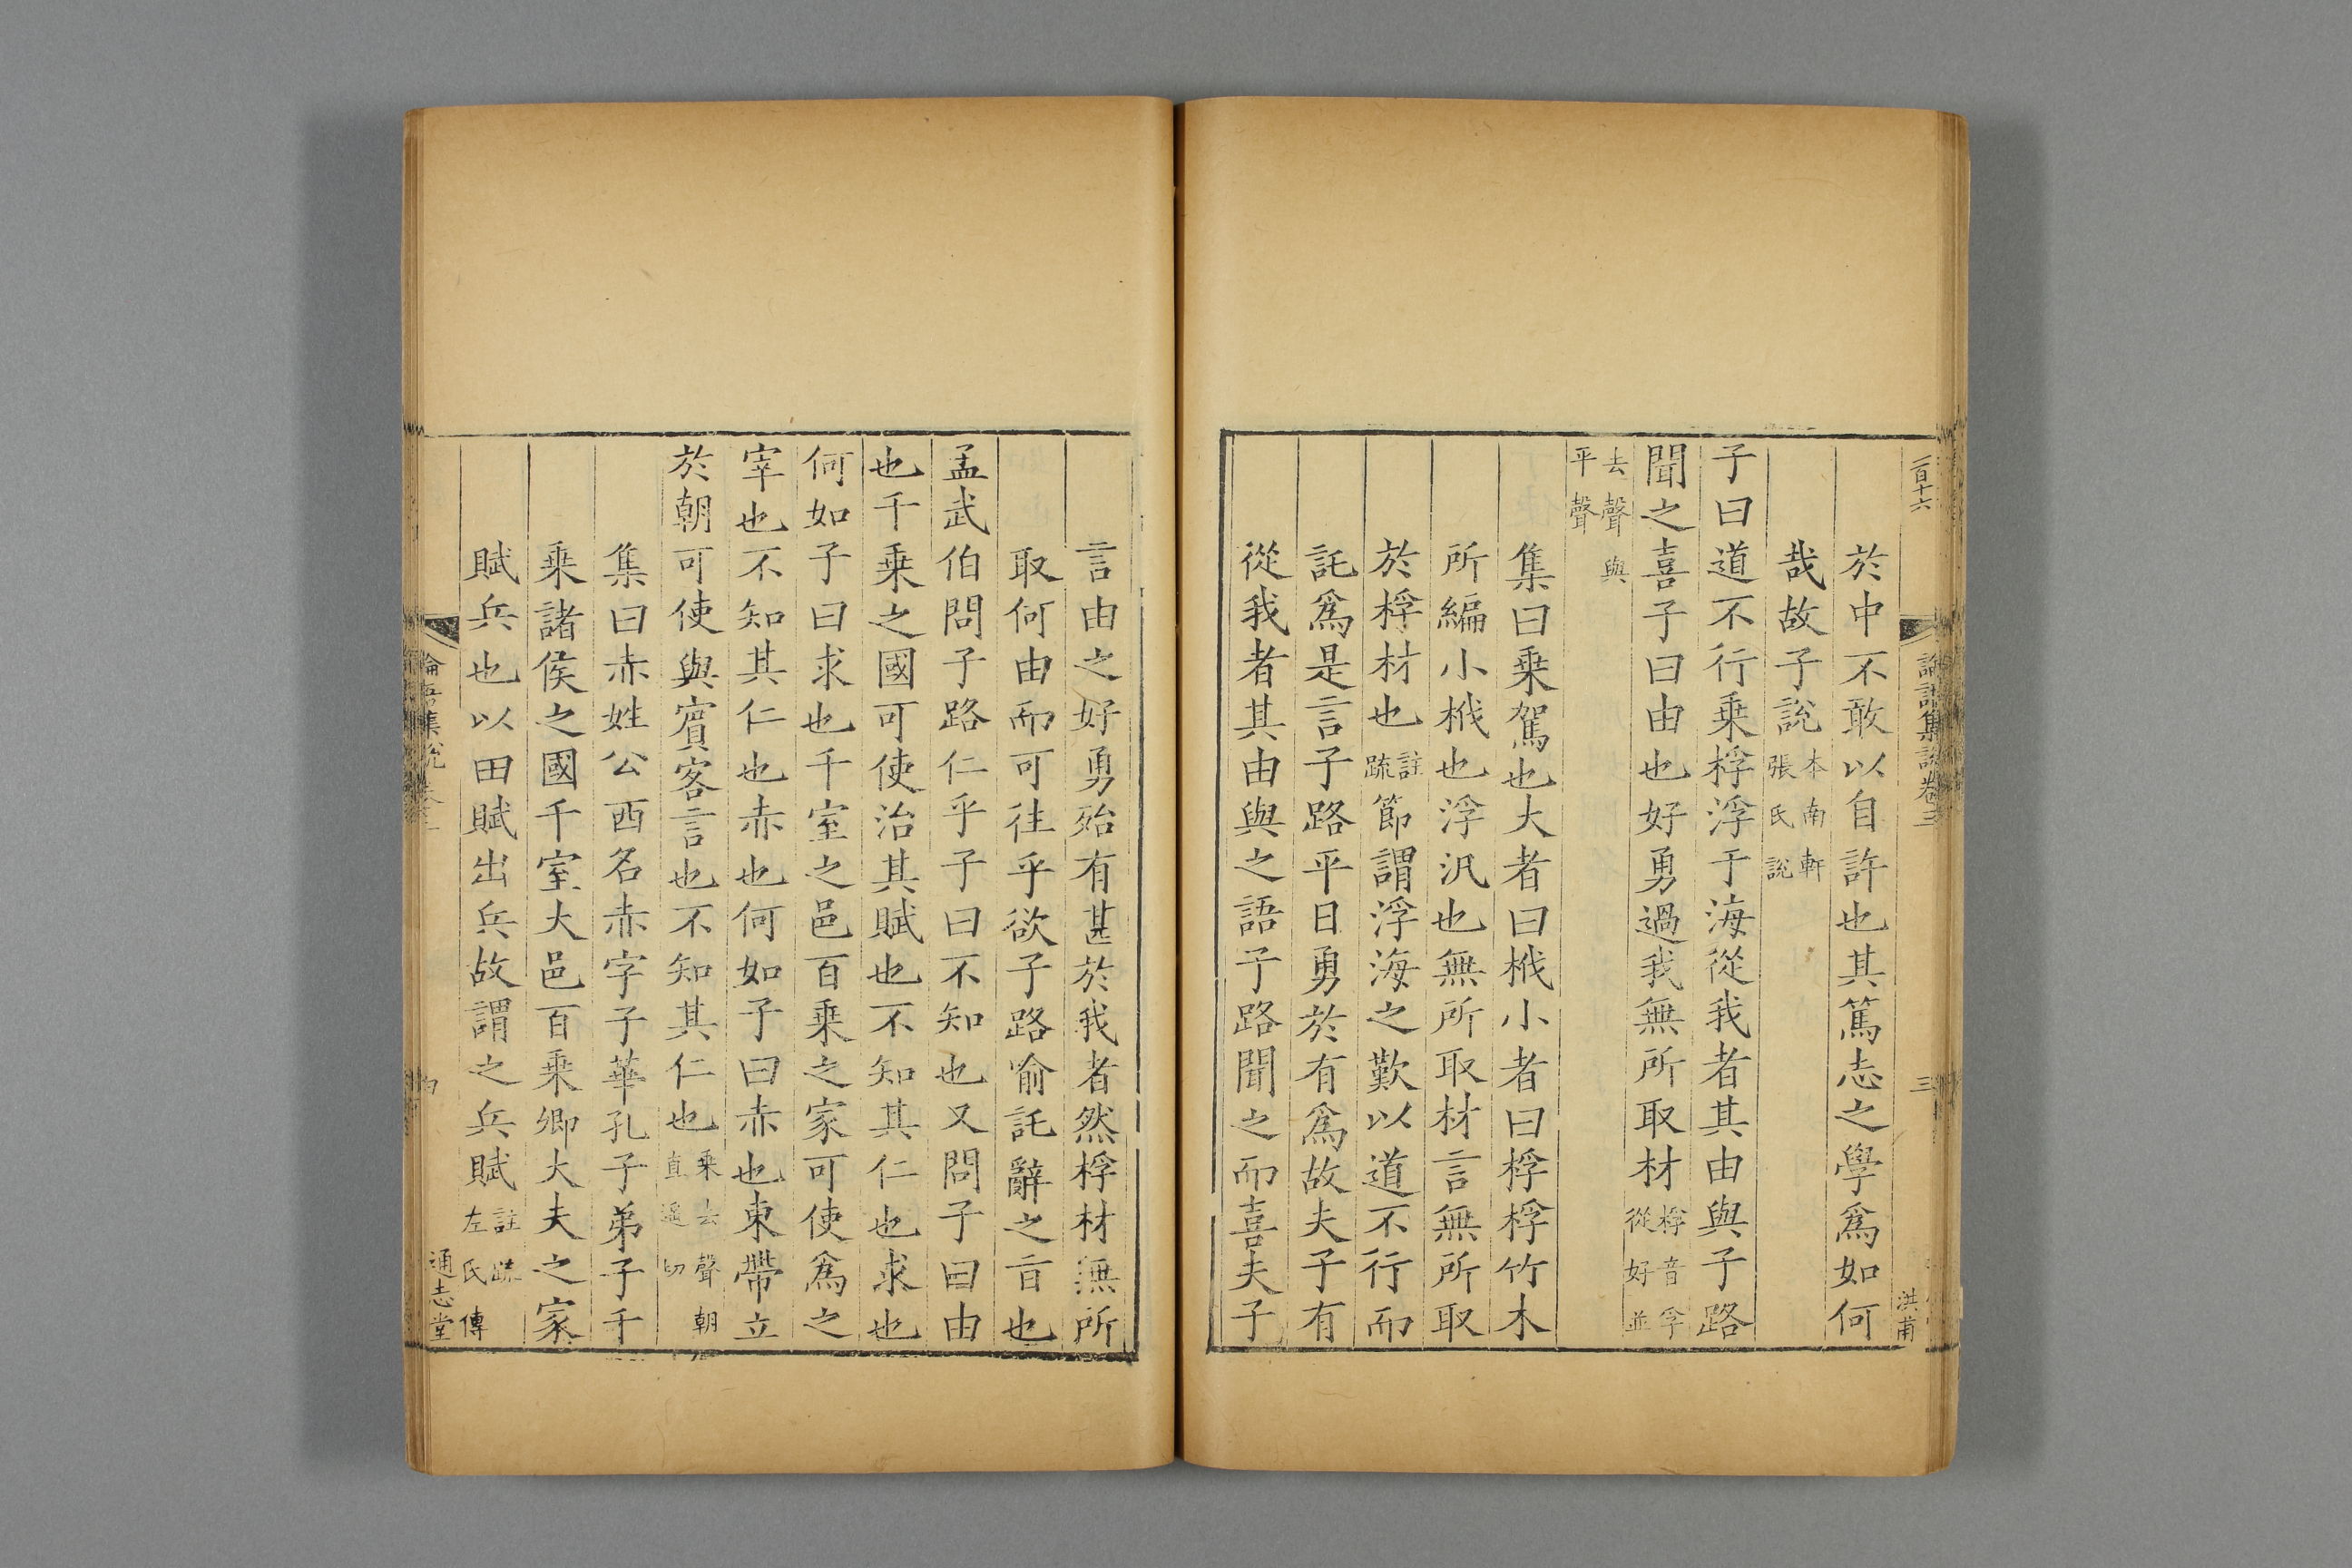 二百十六
論語集說卷三
三
洪甫
於中不敢以自許也其篤志之學爲如何
哉故子說本南軒張氏說
子曰道不行乗桴浮于海從我者其由與子路
聞之喜子曰由也好勇過我無所取材桴音孚從好並
去聲與平聲
集曰乗駕也大者曰栰小者曰桴桴竹木
所編小栰也浮汎也無所取材言無所取
於桴材也註疏節謂浮海之歎以道不行而
託爲是言子路平日勇於有爲故夫子有
從我者其由與之語子路聞之而喜夫子
言由之好勇殆有甚於我者然桴材無所
取何由而可往乎欲子路喻託辭之㫖也
孟武伯問子路仁乎子曰不知也又問子曰由
也千乗之國可使治其賦也不知其仁也求也
何如子曰求也千室之邑百乗之家可使爲之
宰也不知其仁也赤也何如子曰赤也束帶立
於朝可使與賓客言也不知其仁也乗去聲朝直遥切
集曰赤姓公西名赤字子華孔子弟子千
乗諸侯之國千室大邑百乗卿大夫之家
賦兵也以田賦出兵故謂之兵賦註疏左氏傳
論語集說卷三
通志堂